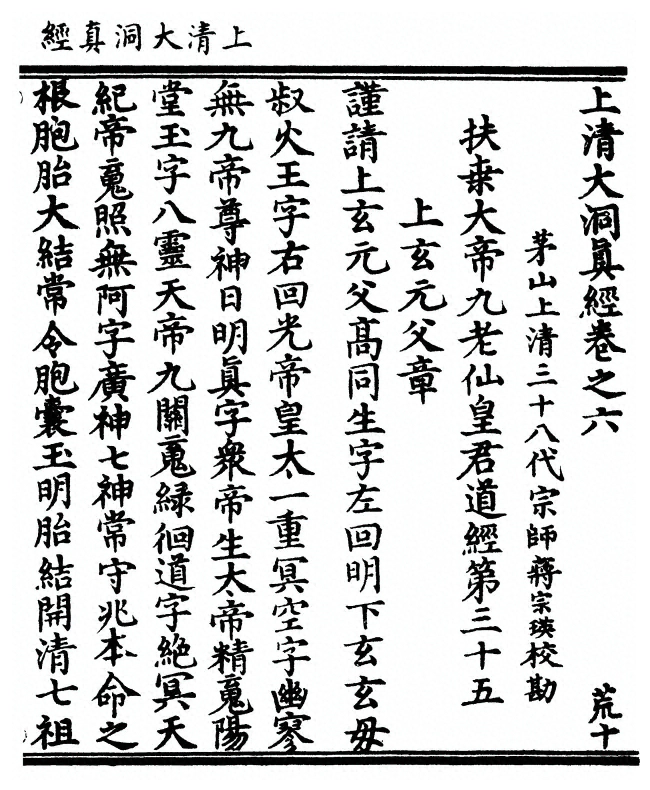 上清大洞真經
上清大洞眞經卷之六
荒十
茅山上清三十八代宗師蔣宗瑛校勘
扶桒大帝九老仙皇君道經第三十五
上玄元父章
謹請上玄元父髙同生字左回明下玄玄毋
叔火王字右回光帝皇太一重冥空字幽寥
無九帝尊神日明眞字衆帝生太帝精䰟陽
堂玉字八靈天帝九關䰟緑徊道字絶冥天
紀帝䰟照無阿字廣神七神常守兆本命之
根胞胎大結常令胞囊玉明胎結開清七祖